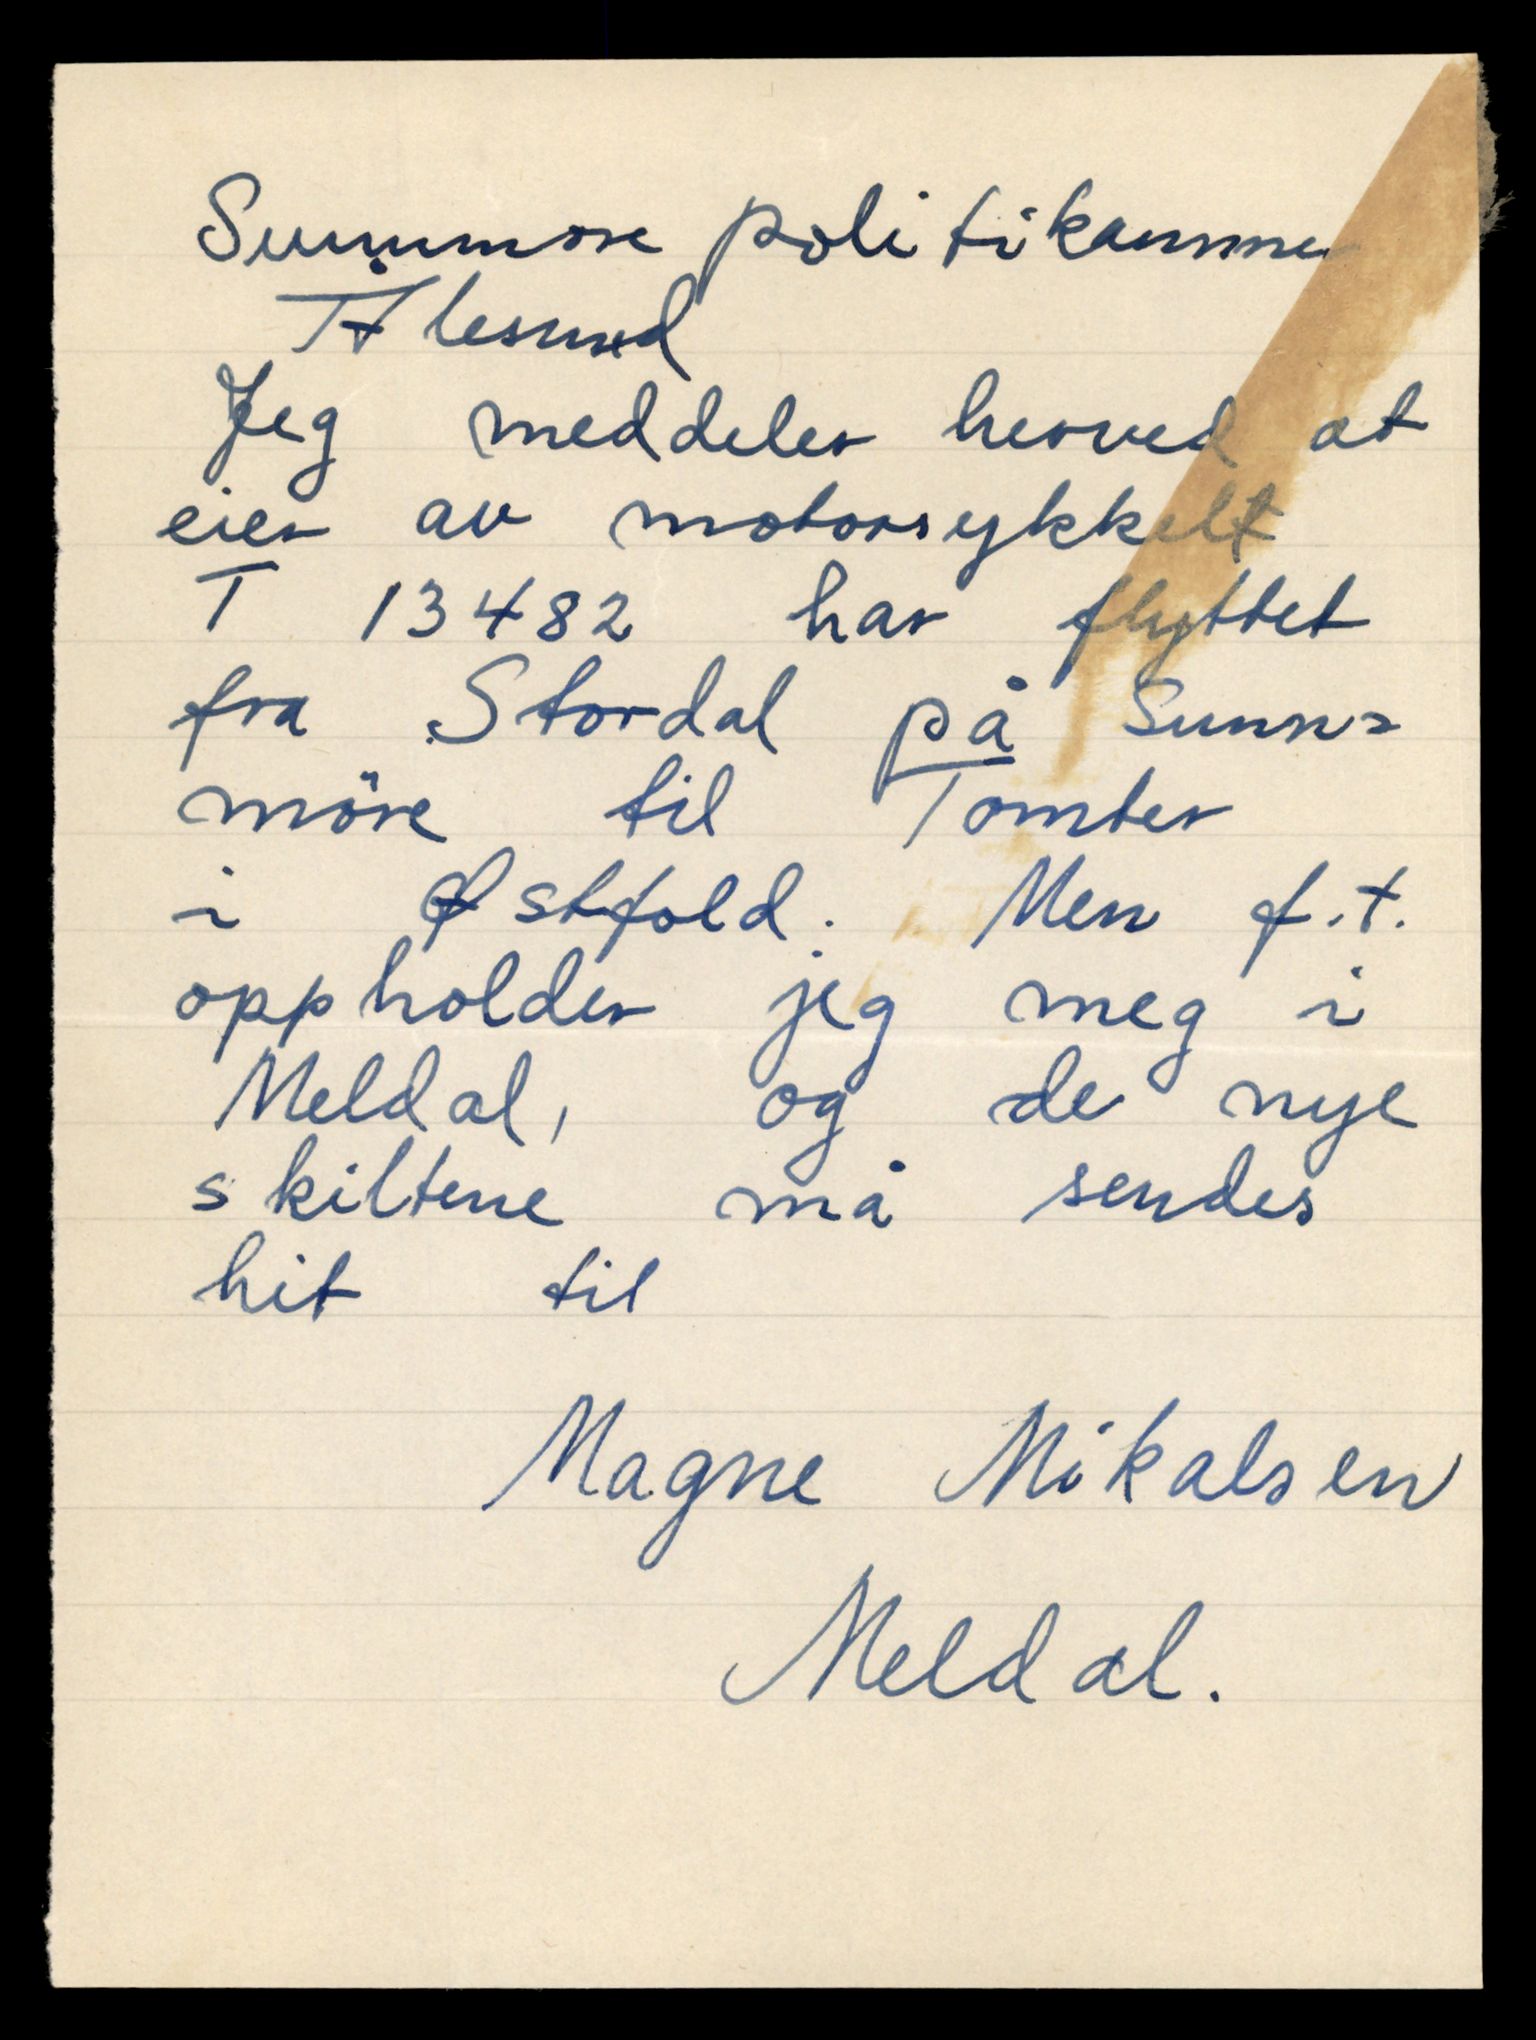 Sunnmøre politikammer
Ålesund
Jeg meddeler herved at
eier av motorsykkelt
T 13482 har flyttet
fra Stordal på Sunn=
möre til Tomter
i Østfold. Men f.t.
oppholder jeg meg i
Meldal, og de nye
skiltene må sendes
hit til
Magne Mikalsen
Meldal.